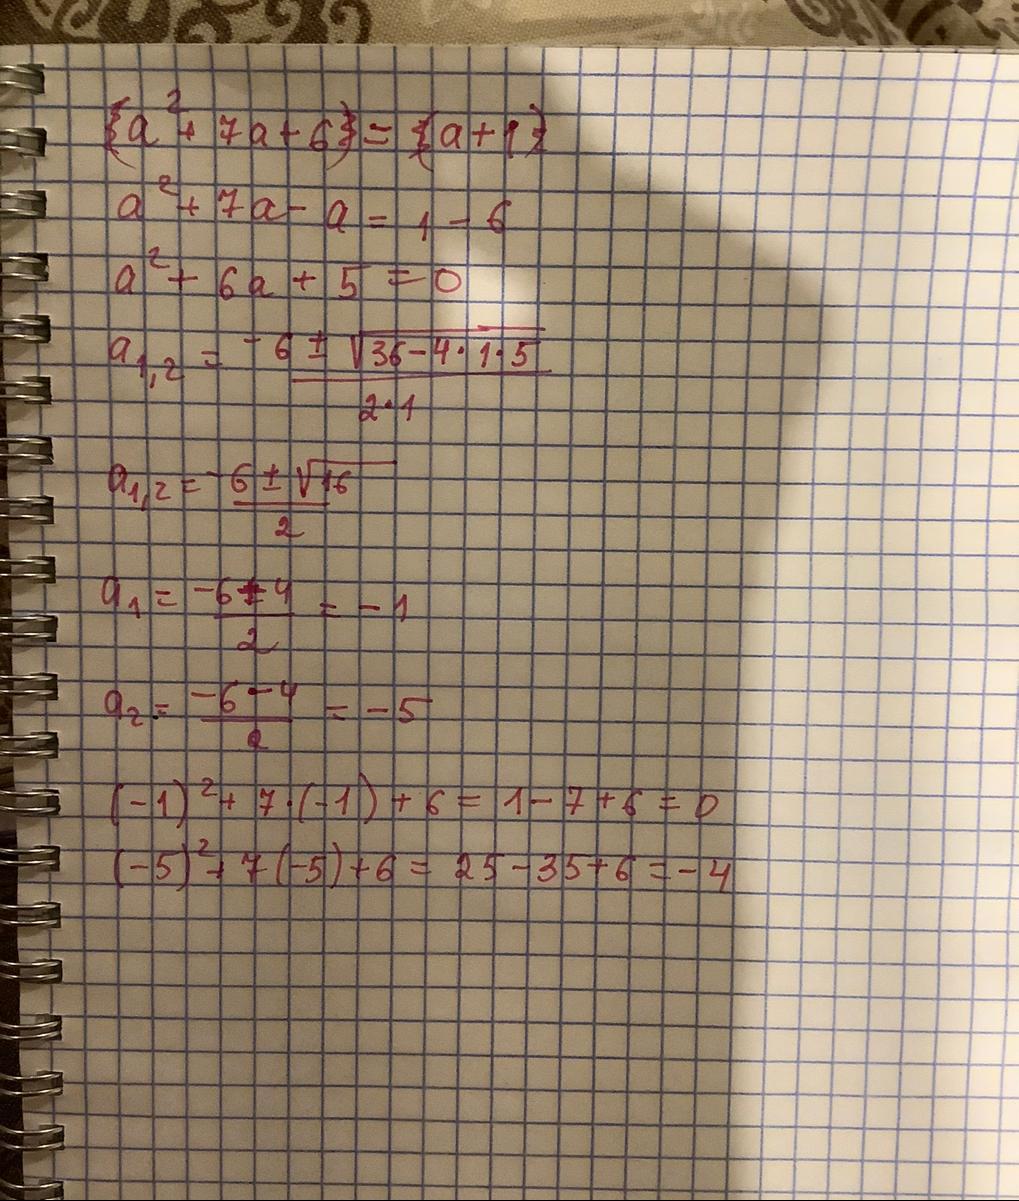 {a² + 7a + 6} = {a + 1}
a² + 7a - a = 1 - 6
a² + 6a + 5 = 0
a₁,₂ = -6 ± √36 - 4 · 1 · 5
2 · 1
a₁,₂ = -6 ± √16
2
a₁ = -6 + 4 = -1
2
a₂ = -6 - 4 = -5
2
(-1)² + 7 · (-1) + 6 = 1 - 7 + 6 = 0
(-5)² + 7 (-5) + 6 = 25 - 35 + 6 = -4